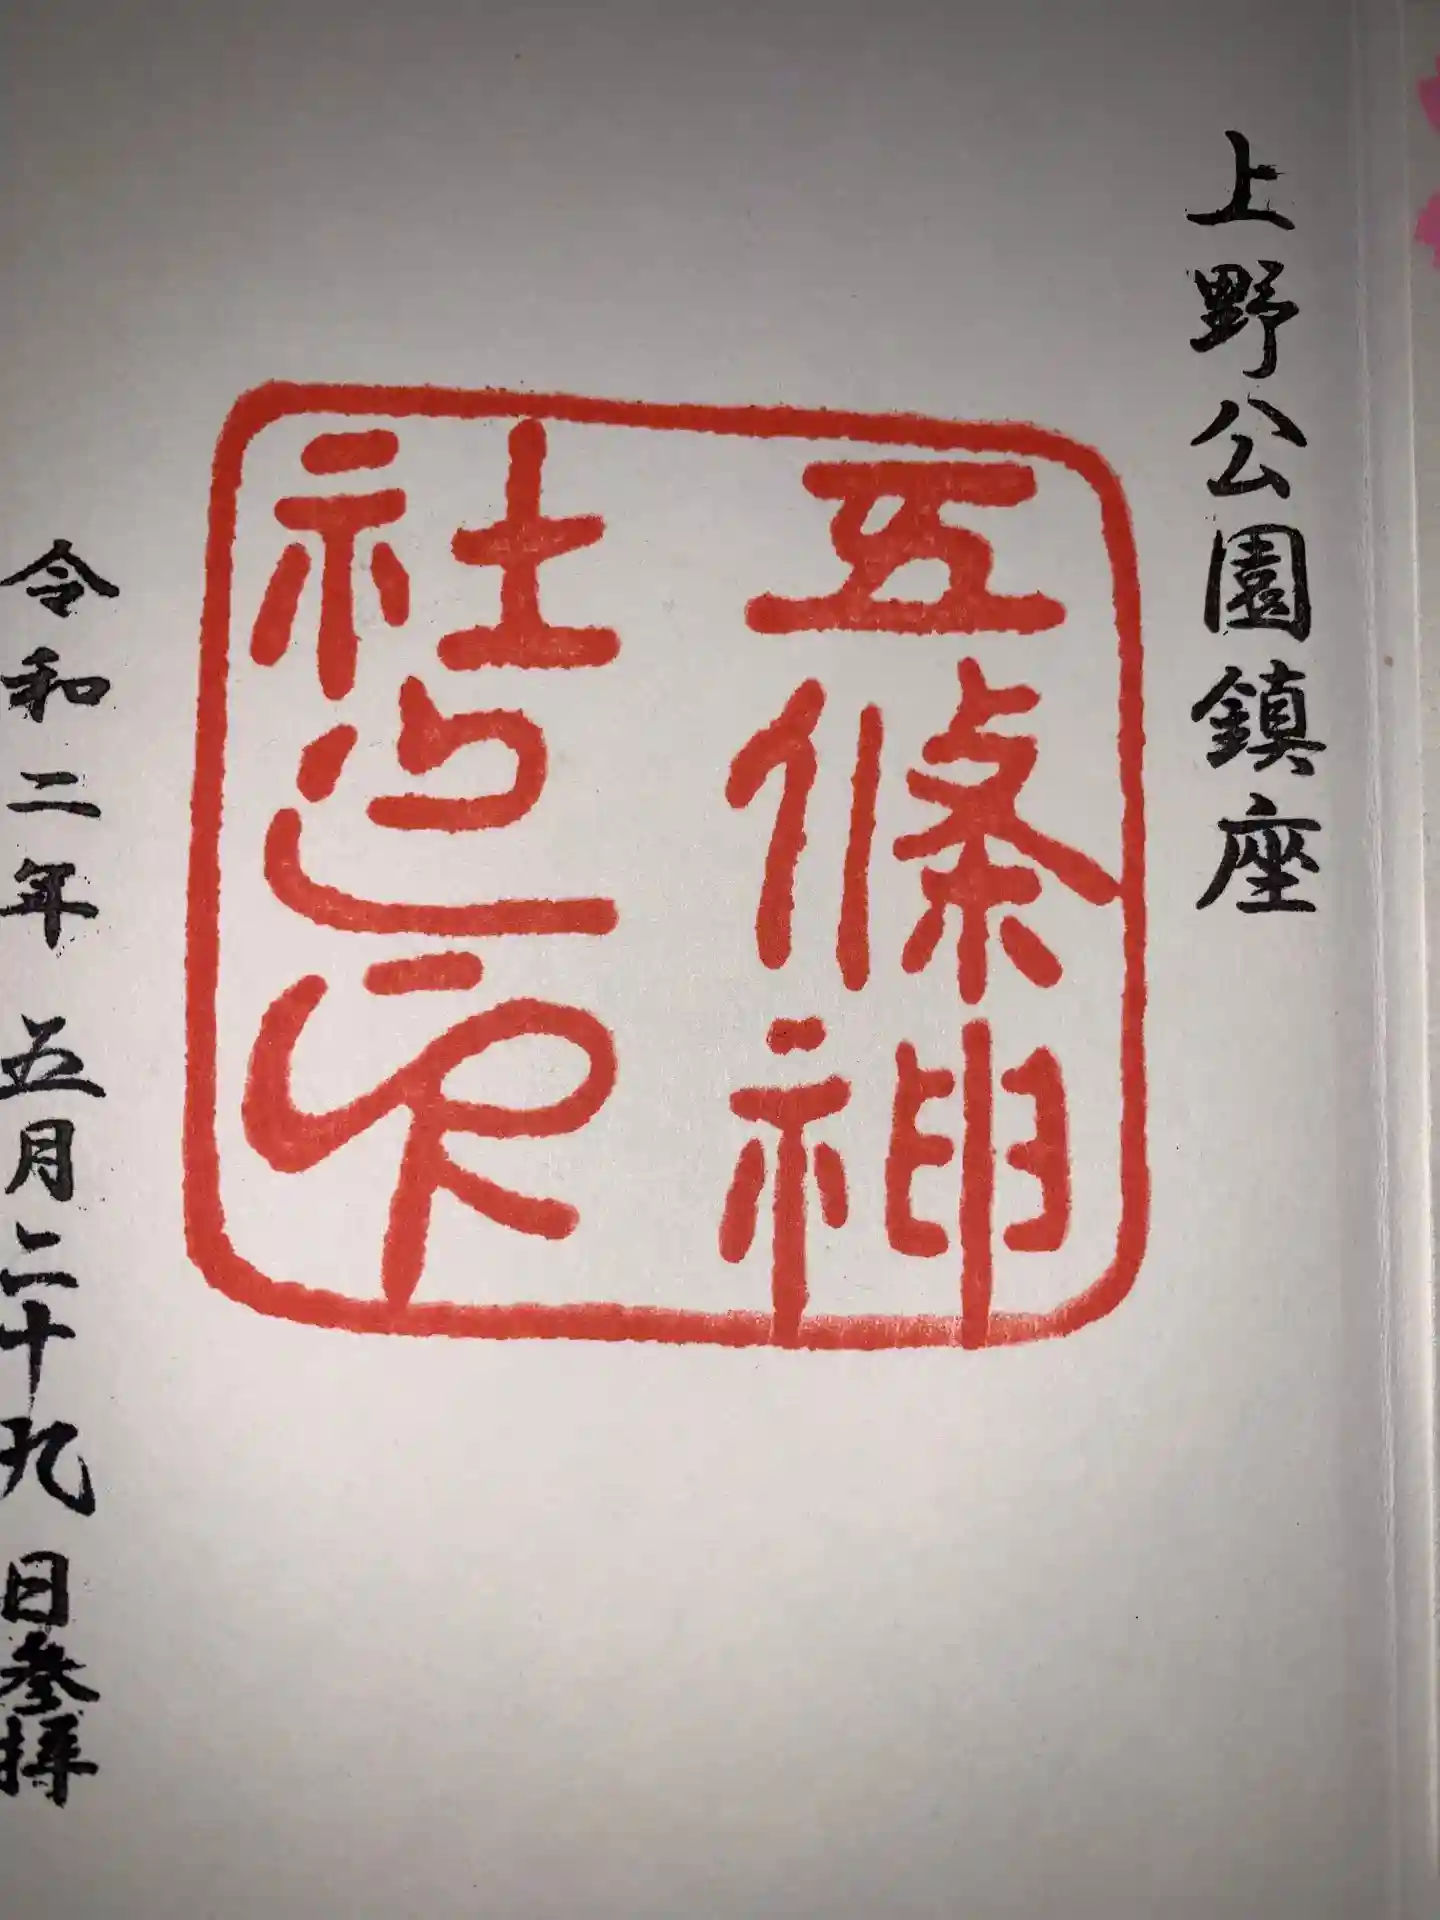 上野公園鎮座
五條神
社之印
令和二年 五月二十九日参拝